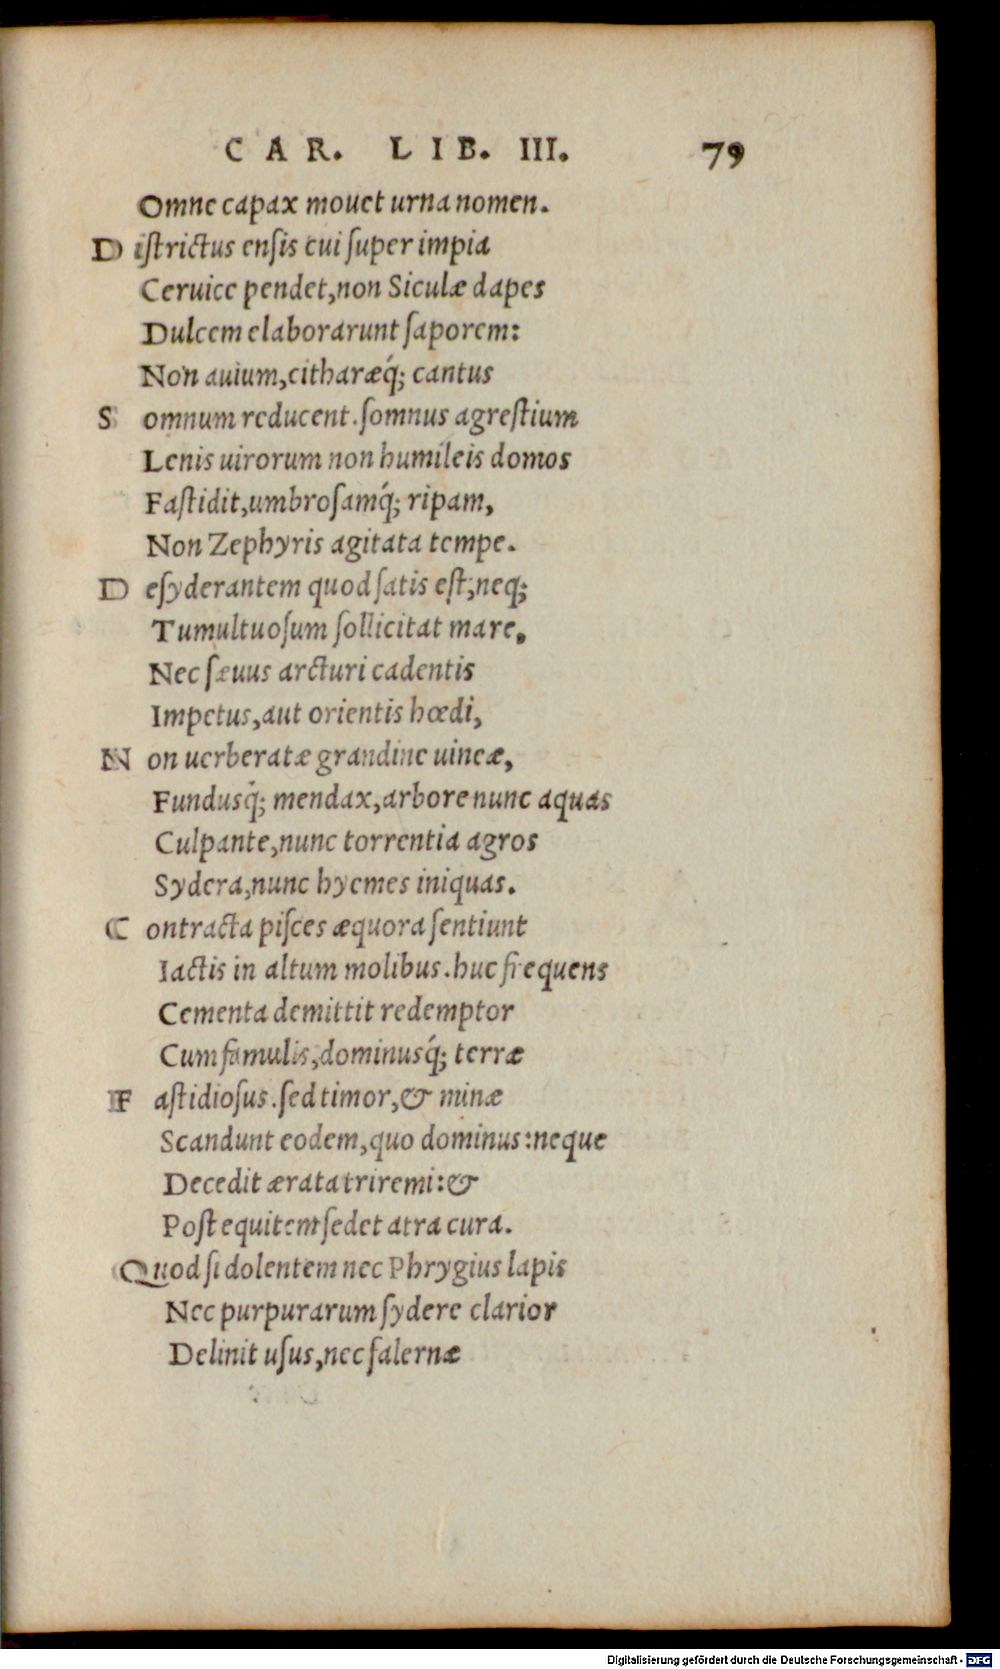 CAR. LIB. III. 79
Omne capax mouet urna nomen.
Districtus ensis cui super impia
Ceruice pendet,non Siculæ dapes
Dulcem elaborarunt saporem:
Non auium,citharæq́; cantus
Somnum reducent.somnus agrestium
Lenis uirorum non humileis domos
Fastidit,umbrosamq́; ripam,
Non Zephyris agitata tempe.
Desyderantem quod satis est,neq;
Tumultuosum sollicitat mare,
Nec sæuus arcturi cadentis
Impetus,aut orientis hœdi,
Non uerberatæ grandine uineæ,
Fundusq́; mendax,arbore nunc aquas
Culpante,nunc torrentia agros
Sydera,nunc hyemes iniquas.
Contracta pisces æquora sentiunt
Iactis in altum molibus.huc frequens
Cementa demittit redemptor
Cum famulis,dominusq́; terræ
Fastidiosus.sed timor,& minæ
Scandunt eodem,quo dominus:neque
Decedit ærata triremi:&
Post equitem sedet atra cura.
Quod si dolentem nec Phrygius lapis
Nec purpurarum sydere clarior
Delinit usus,nec falernæ
Digitalisierung gefördert durch die Deutsche Forschungsgemeinschaft - DFG